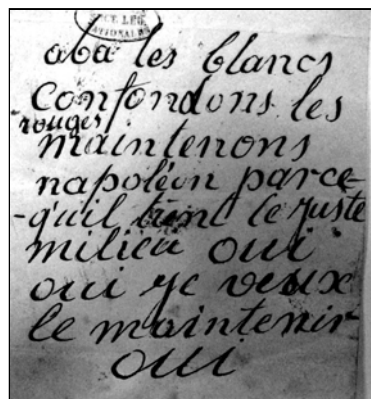 CE LÉG
NATIONALE
aba les blancs
confondons les
rouges
maintenons
napoléon parce
-qu'il tient le juste
milieu oui
oui je veux
le maintenir
oui